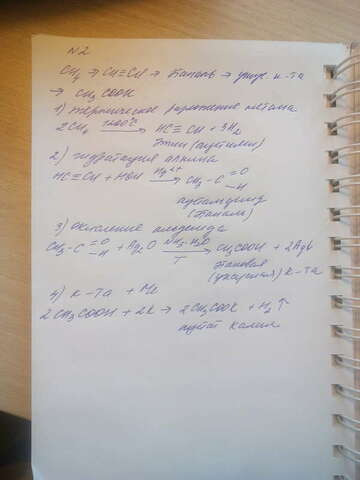 N2
CH₄ → CH≡CH → Этаналь → уксус. к-та
→ CH₃COOK
1) термическое разложение метана
2CH₄ 1500°C → HC≡CH + 3H₂
Этин (ацетилен)
2) гидратация алкина
HC≡CH + HOH Hg²⁺ → CH₃-C=O
-H
ацетальдегид
(этаналь)
3) окисление альдегида
CH₃-C=O-H + Ag₂O NH₃·H₂O → CH₃COOH + 2Ag↓
T
этановая
(уксусная) к-та
4) к-та + Me
2CH₃COOH + 2K → 2CH₃COOK + H₂↑
ацетат калия